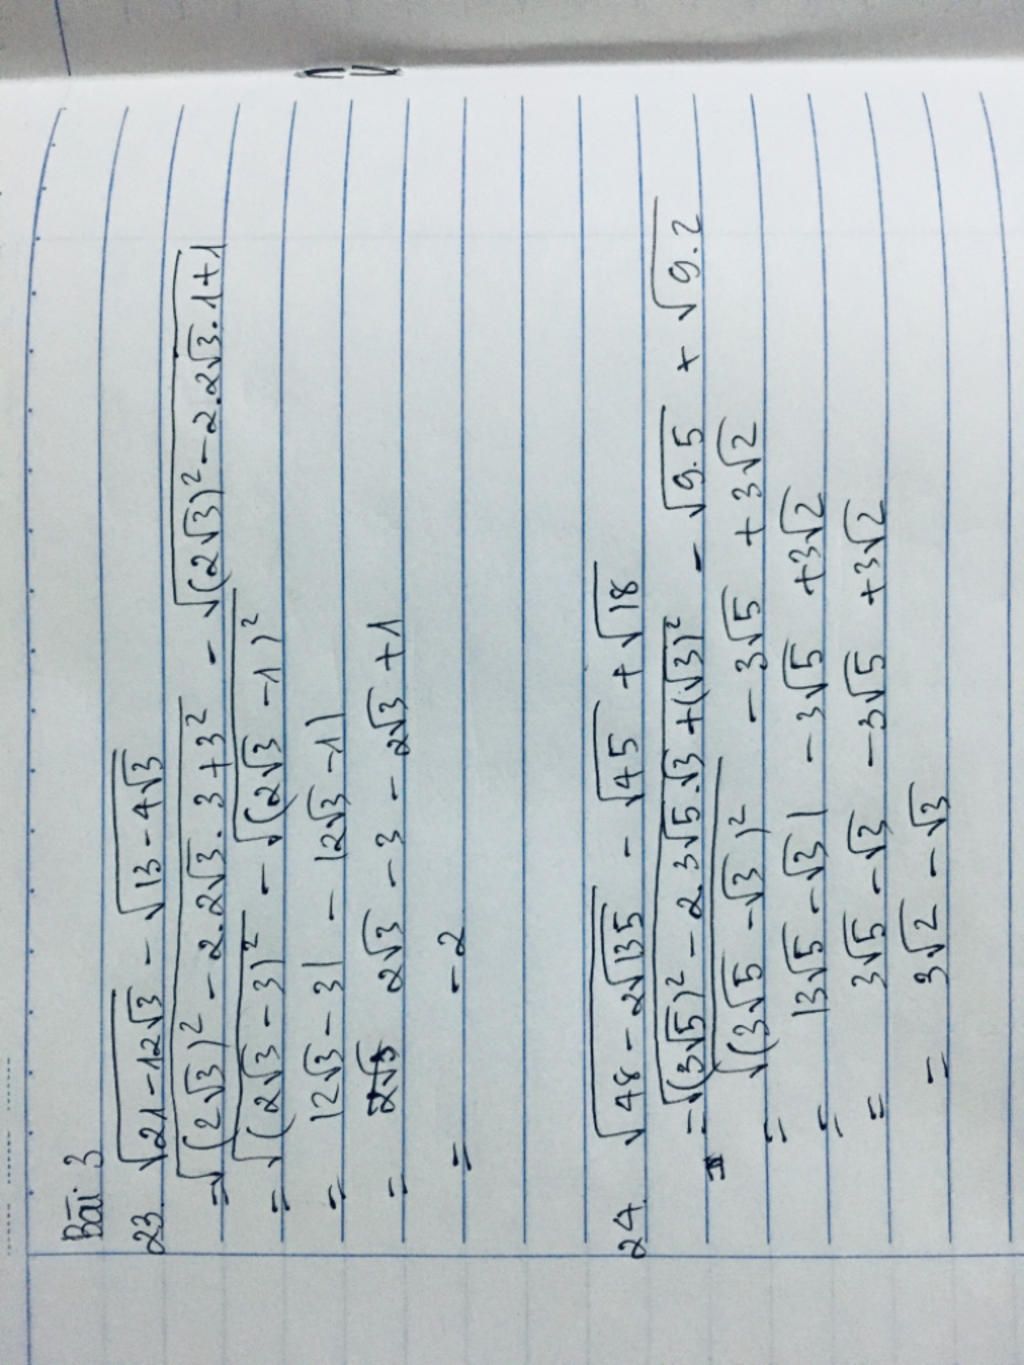 Bài 3
23. √(21-12√3) - √(13-4√3)
= √((2√3)² - 2.2√3.3+3²) - √((2√3)² - 2.2√3.1+1)
= √((2√3 - 3)²) - √((2√3 - 1)²)
= |2√3 - 3| - |2√3 - 1|
= 2√3 - 3 - 2√3 + 1
= -2
24. √(48 - 2√135) - √45 + √18
= √((3√5)² - 2.3√5.√3 + (√3)²) - √(9.5) + √(9.2)
= √((3√5 - √3)²) - 3√5 + 3√2
= |3√5 - √3| - 3√5 + 3√2
= 3√5 - √3 - 3√5 + 3√2
= 3√2 - √3